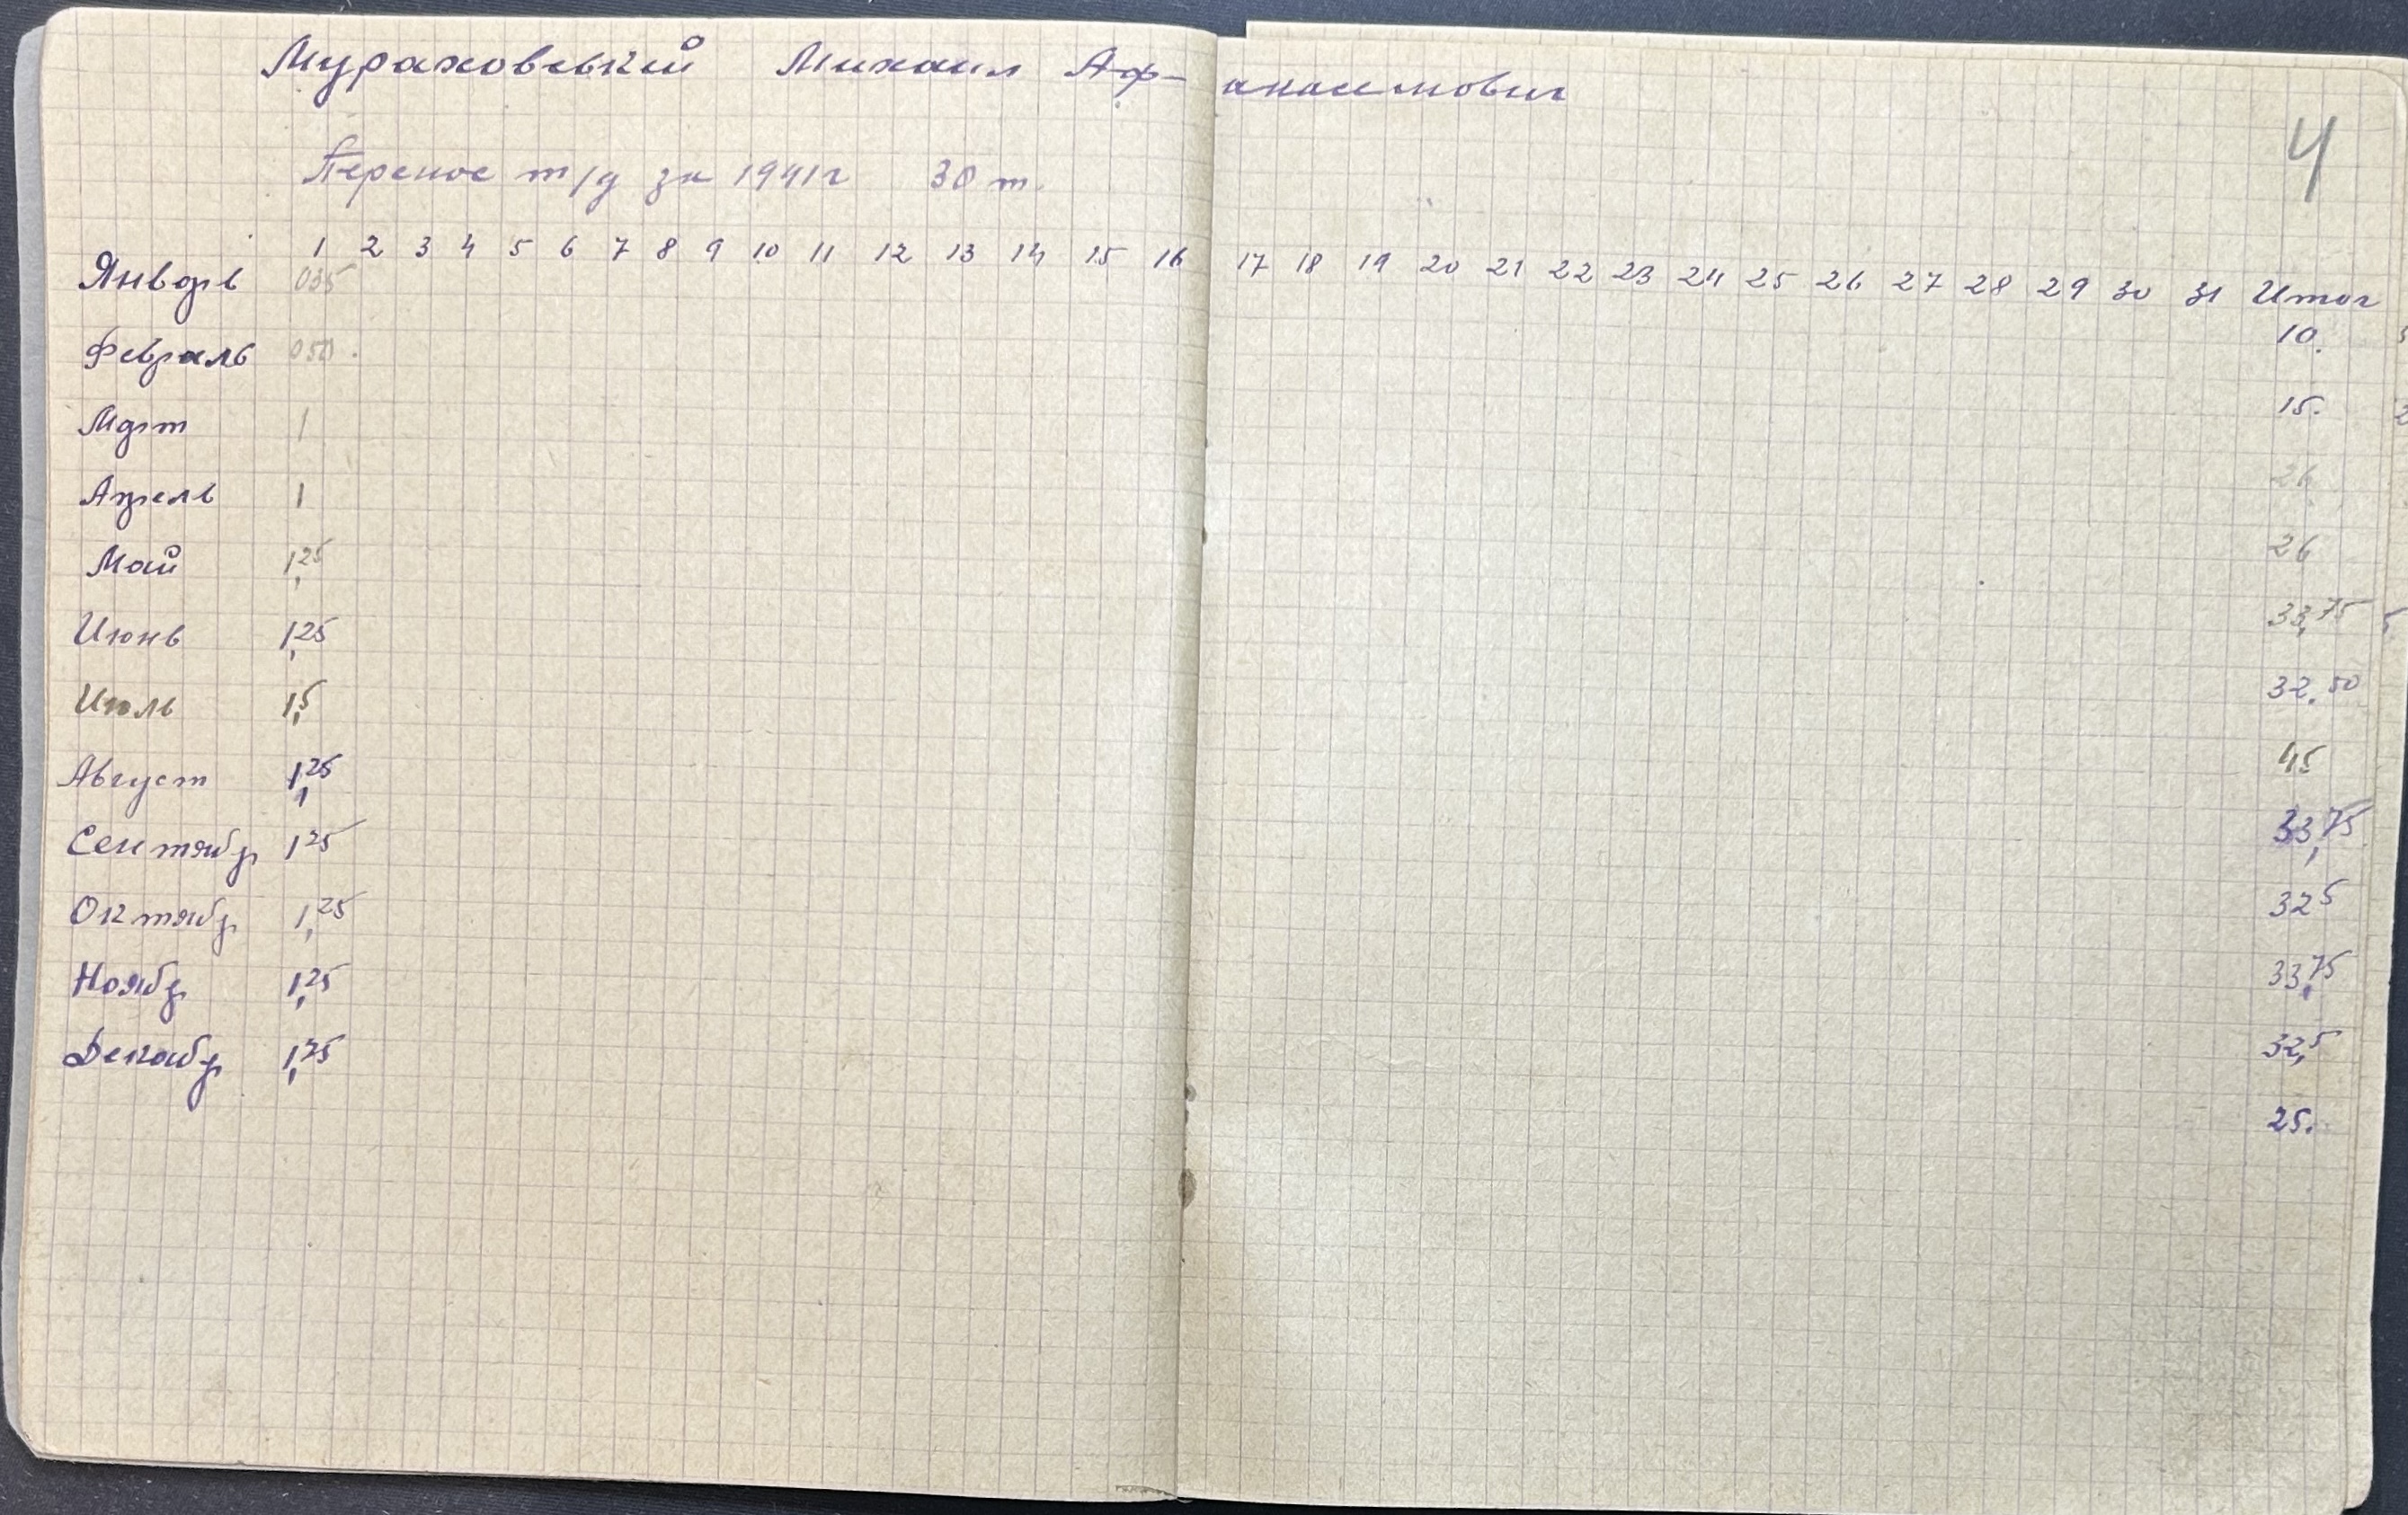 Мураховський Михаил Аф-анасимович
4
Перенос т/д за 1941г 30 т.
1 2 3 4 5 6 7 8 9 10 11 12 13 14 15 16 17 18 19 20 21 22 23 24 25 26 27 28 29 30 31 Итог
Январь 035 10.
Февраль 050. 15.
Март 1 26
Апрель 1 26
Май 1,25 33,75
Июнь 1,25 32.50
Июль 1,5 45
Август 1,25 33,75
Сентябр 125 325
Октябр 1,25 33,75
Ноябр 1,25 32,5
Декабр 1,25 25.